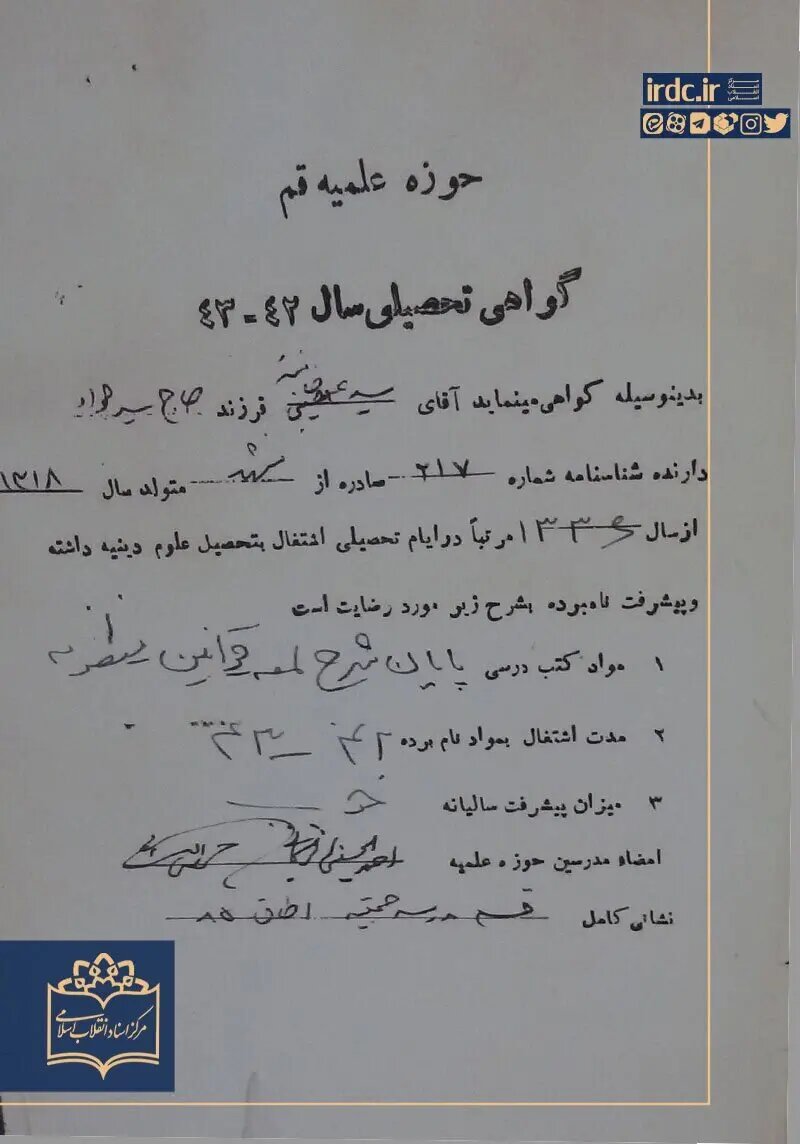 irdc.ir
مرکز اسناد انقلاب اسلامی
حوزه علمیه قم
گواهی تحصیلی سال ۴۲ - ۴۳
بدینوسیله گواهی مینماید آقای سید فرزند حاج سید جواد
دارنده شناسنامه شماره ۲۱۷ صادره از مشهد متولد سال ۱۳۱۸
از سال ۱۳۳۶ مرتباً در ایام تحصیلی اشتغال بتحصیل علوم دینیه داشته
و پیشرفت نامبرده بشرح زیر مورد رضایت است
۱ مواد کتب درسی پایان شرح لمعه و قوانین منظومه
۲ مدت اشتغال بمواد نام برده ۴۲ - ۴۳
۳ میزان پیشرفت سالیانه خوب
امضاء مدرسین حوزه علمیه
نشانی کامل قم مدرسه حجتیه اطاق ۸۵
مرکز اسناد انقلاب اسلامی